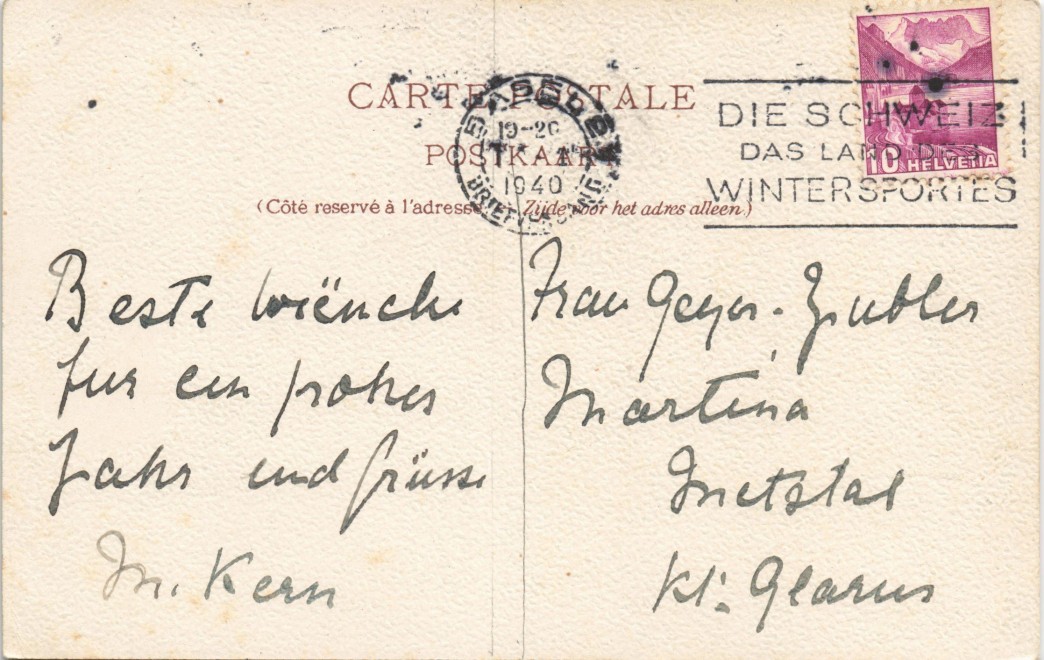 CARTE POSTALE
POSTKAART
(Côté reservé à l'adresse. Zijde voor het adres alleen.)
BASEL
19-20
1940
BRIEFVERSAND
DIE SCHWEIZ
DAS LAND DES
WINTERSPORTES
10 HELVETIA
Beste Wünsche
für ein frohes
Jahr und Grüsse
M. Kern
Frau Geyer-Zubler
Martina
Netstal
Kt. Glarus